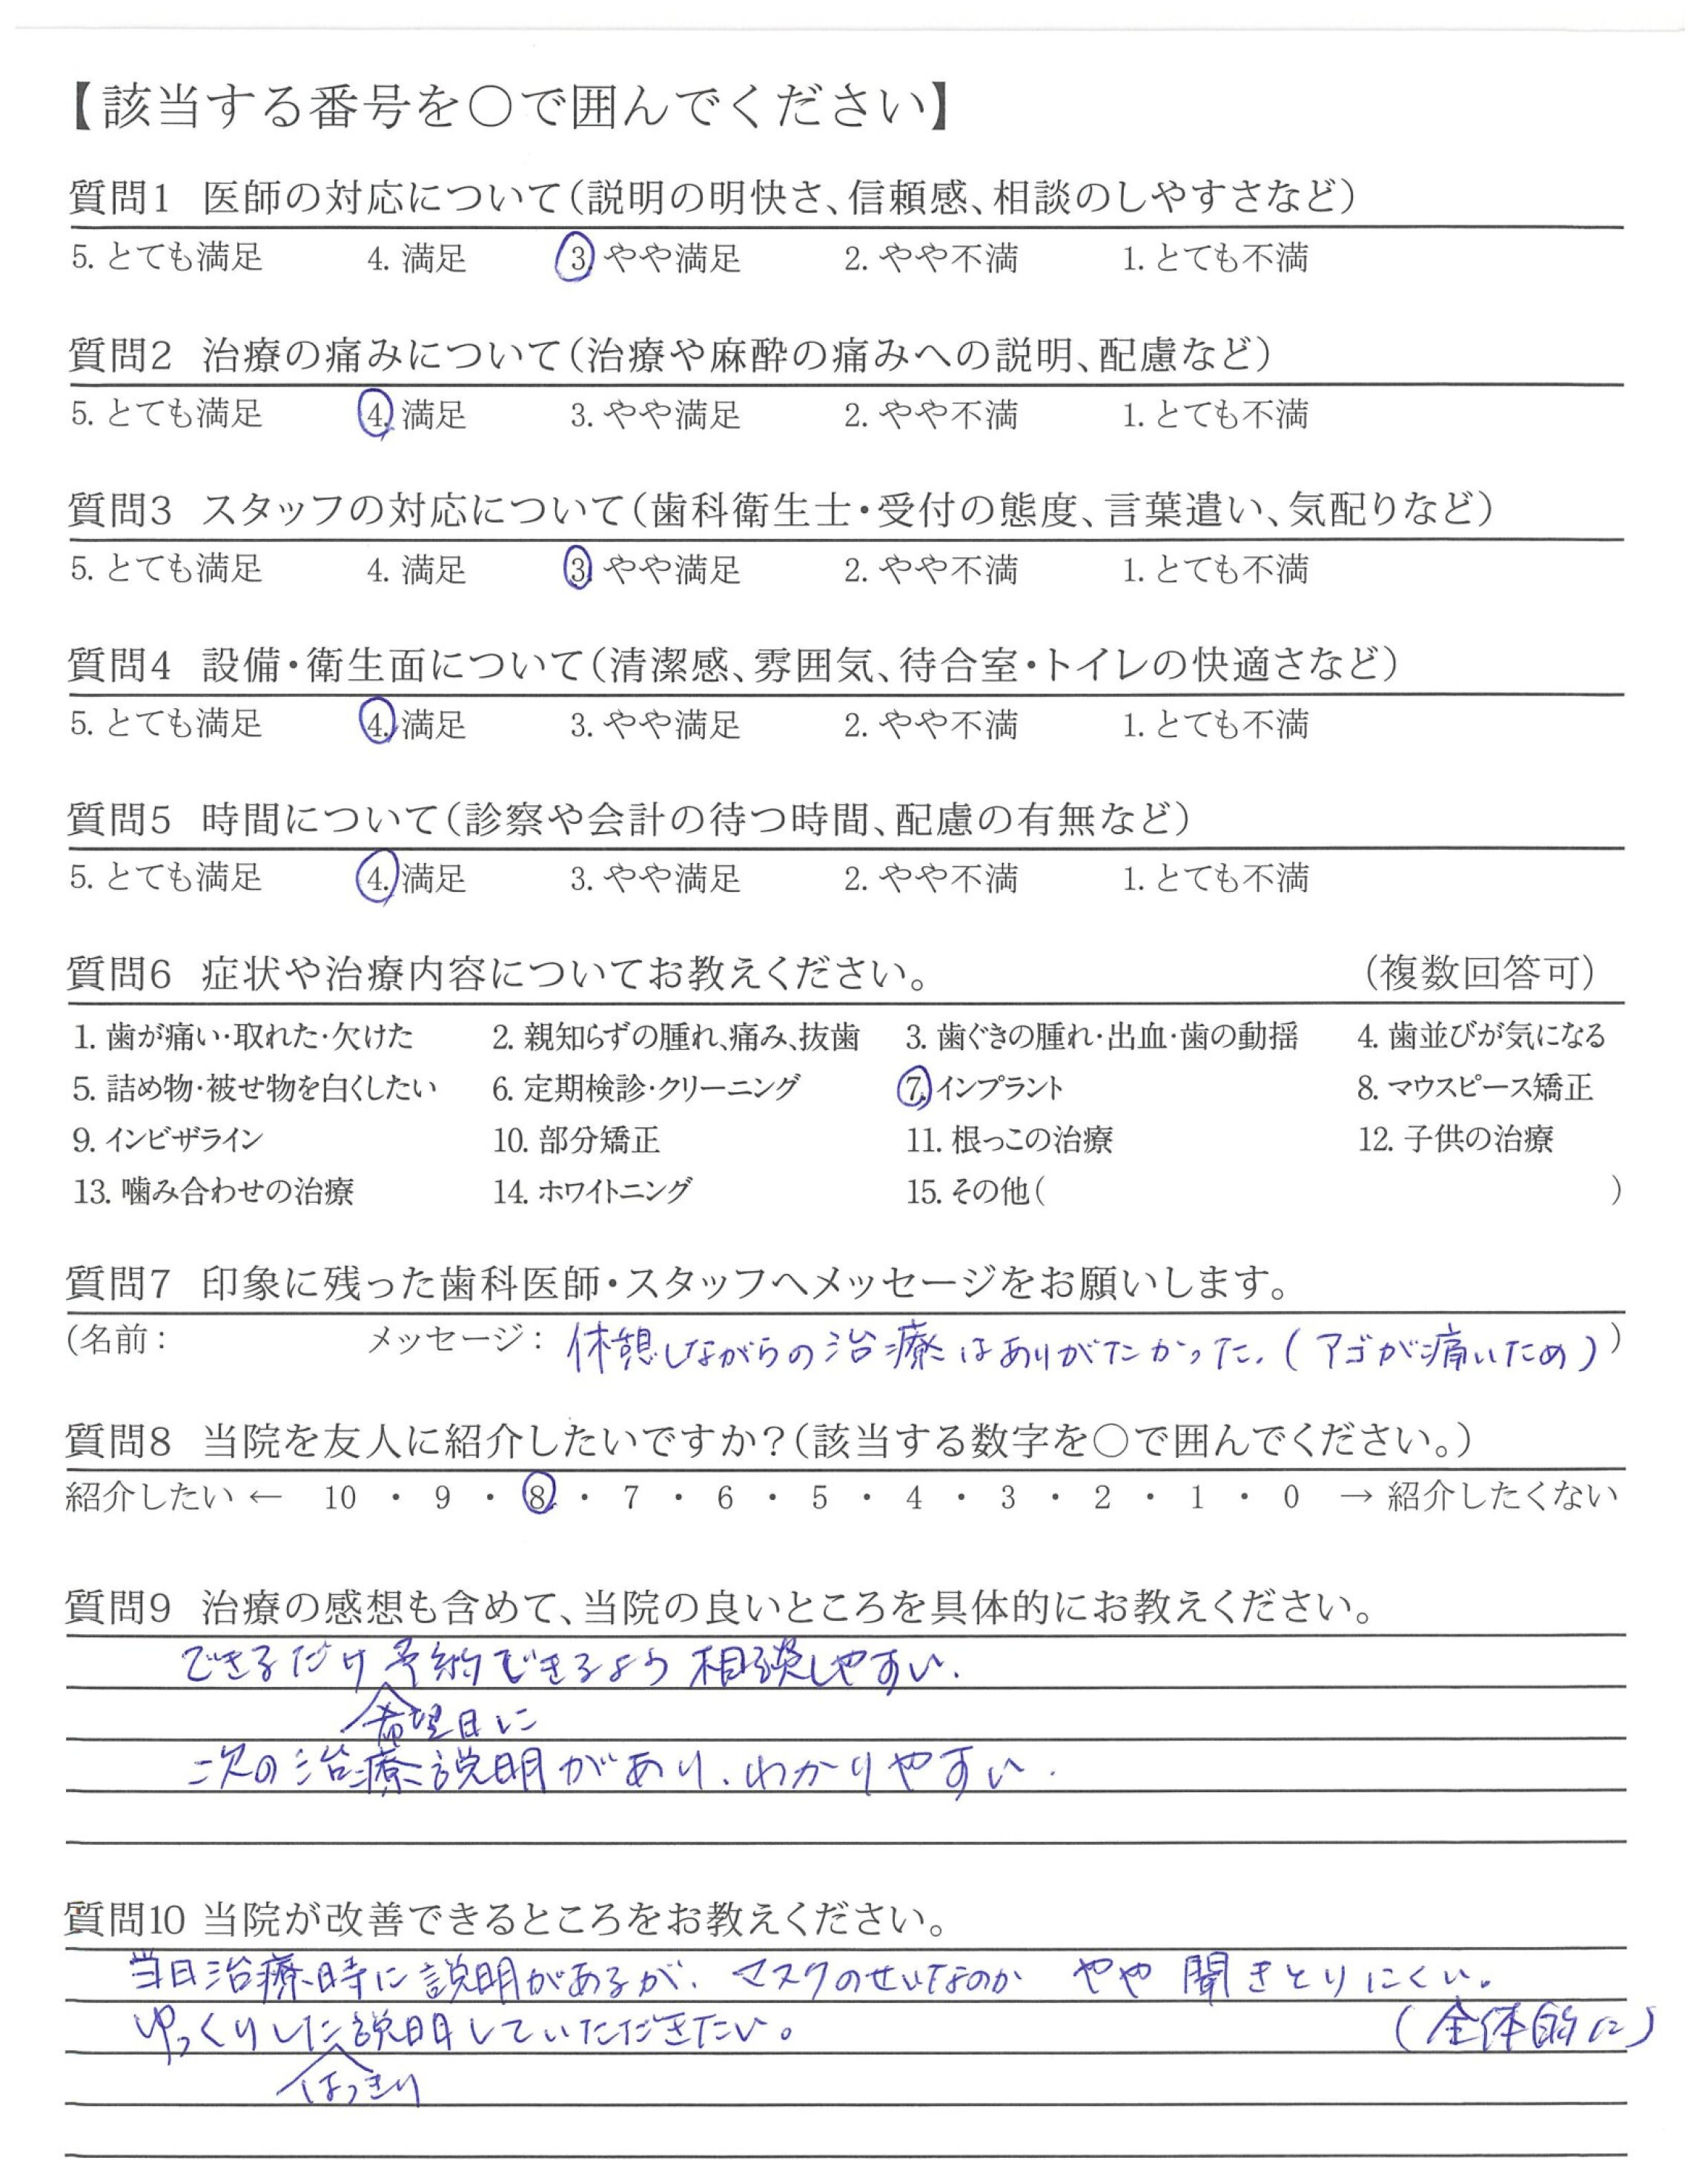 【該当する番号を○で囲んでください】
質問1 医師の対応について(説明の明快さ、信頼感、相談のしやすさなど)
5. とても満足 4. 満足 3. やや満足 2. やや不満 1. とても不満
質問2 治療の痛みについて(治療や麻酔の痛みへの説明、配慮など)
5. とても満足 4. 満足 3. やや満足 2. やや不満 1. とても不満
質問3 スタッフの対応について(歯科衛生士・受付の態度、言葉遣い、気配りなど)
5. とても満足 4. 満足 3. やや満足 2. やや不満 1. とても不満
質問4 設備・衛生面について(清潔感、雰囲気、待合室・トイレの快適さなど)
5. とても満足 4. 満足 3. やや満足 2. やや不満 1. とても不満
質問5 時間について(診察や会計の待つ時間、配慮の有無など)
5. とても満足 4. 満足 3. やや満足 2. やや不満 1. とても不満
質問6 症状や治療内容についてお教えください。 (複数回答可)
1. 歯が痛い・取れた・欠けた 2. 親知らずの腫れ、痛み、抜歯 3. 歯ぐきの腫れ・出血・歯の動揺 4. 歯並びが気になる
5. 詰め物・被せ物を白くしたい 6. 定期検診・クリーニング 7. インプラント 8. マウスピース矯正
9. インビザライン 10. 部分矯正 11. 根っこの治療 12. 子供の治療
13. 噛み合わせの治療 14. ホワイトニング 15. その他( )
質問7 印象に残った歯科医師・スタッフへメッセージをお願いします。
(名前: メッセージ: 休憩しながらの治療はありがたかった.(アゴが痛いため))
質問8 当院を友人に紹介したいですか?(該当する数字を○で囲んでください。)
紹介したい ← 10 ・ 9 ・ 8 ・ 7 ・ 6 ・ 5 ・ 4 ・ 3 ・ 2 ・ 1 ・ 0 → 紹介したくない
質問9 治療の感想も含めて、当院の良いところを具体的にお教えください。
できるだけ予約できるよう相談しやすい.
希望日に
次の治療説明があり、わかりやすい.
質問10 当院が改善できるところをお教えください。
当日治療時に説明があるが、マスクのせいなのか やや聞きとりにくい。
ゆっくりした説明していただきたい。 (全体的に)
はっきり